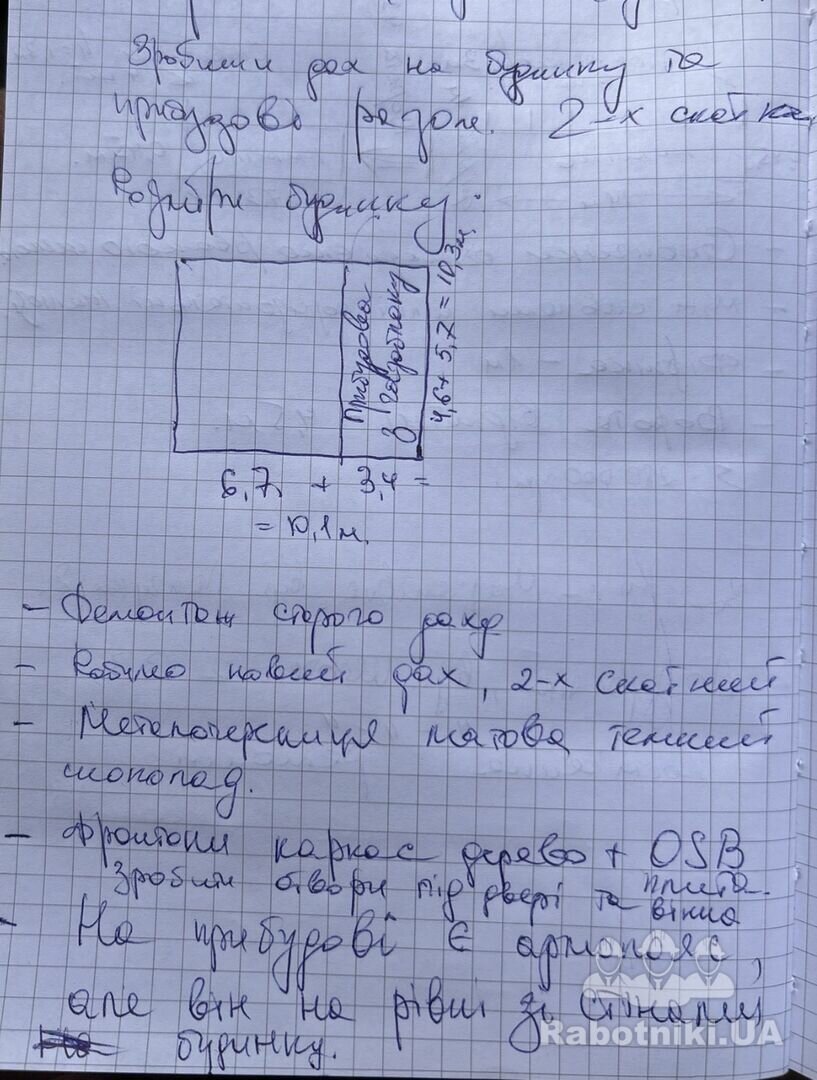 Зробити дах на будинку та
прибудові разом. 2-х скатка.
Розміри будинку:
Прибудова
з газоблоку
4,6+5,7=10,3м.
6,7 + 3,4 =
= 10,1м.
- Демонтаж старого даху
- Робимо новий дах, 2-х скатний
- Металочерепиця матова темний
шоколад.
- Фронтони каркас дерево + OSB
плита.
Зробити отвори під двері та вікна
- На прибудові є армопояс,
але він на рівні зі стінами
будинку.
Rabotniki.UA